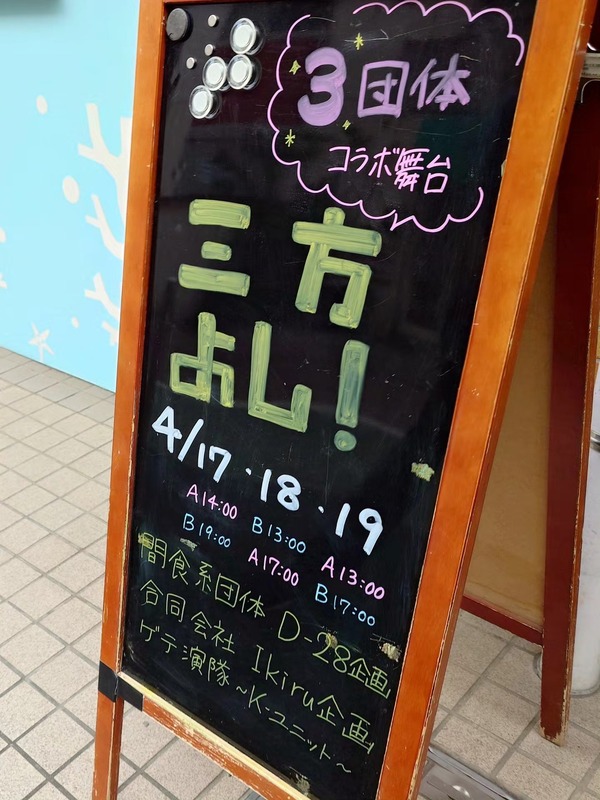 3団体
コラボ舞台
三方
よし!
4/17・18・19
A14:00 B13:00 A13:00
B19:00 A17:00 B17:00
間食系団体 D-28企画
合同会社 Ikiru企画
ゲテ演隊~K-ユニット~